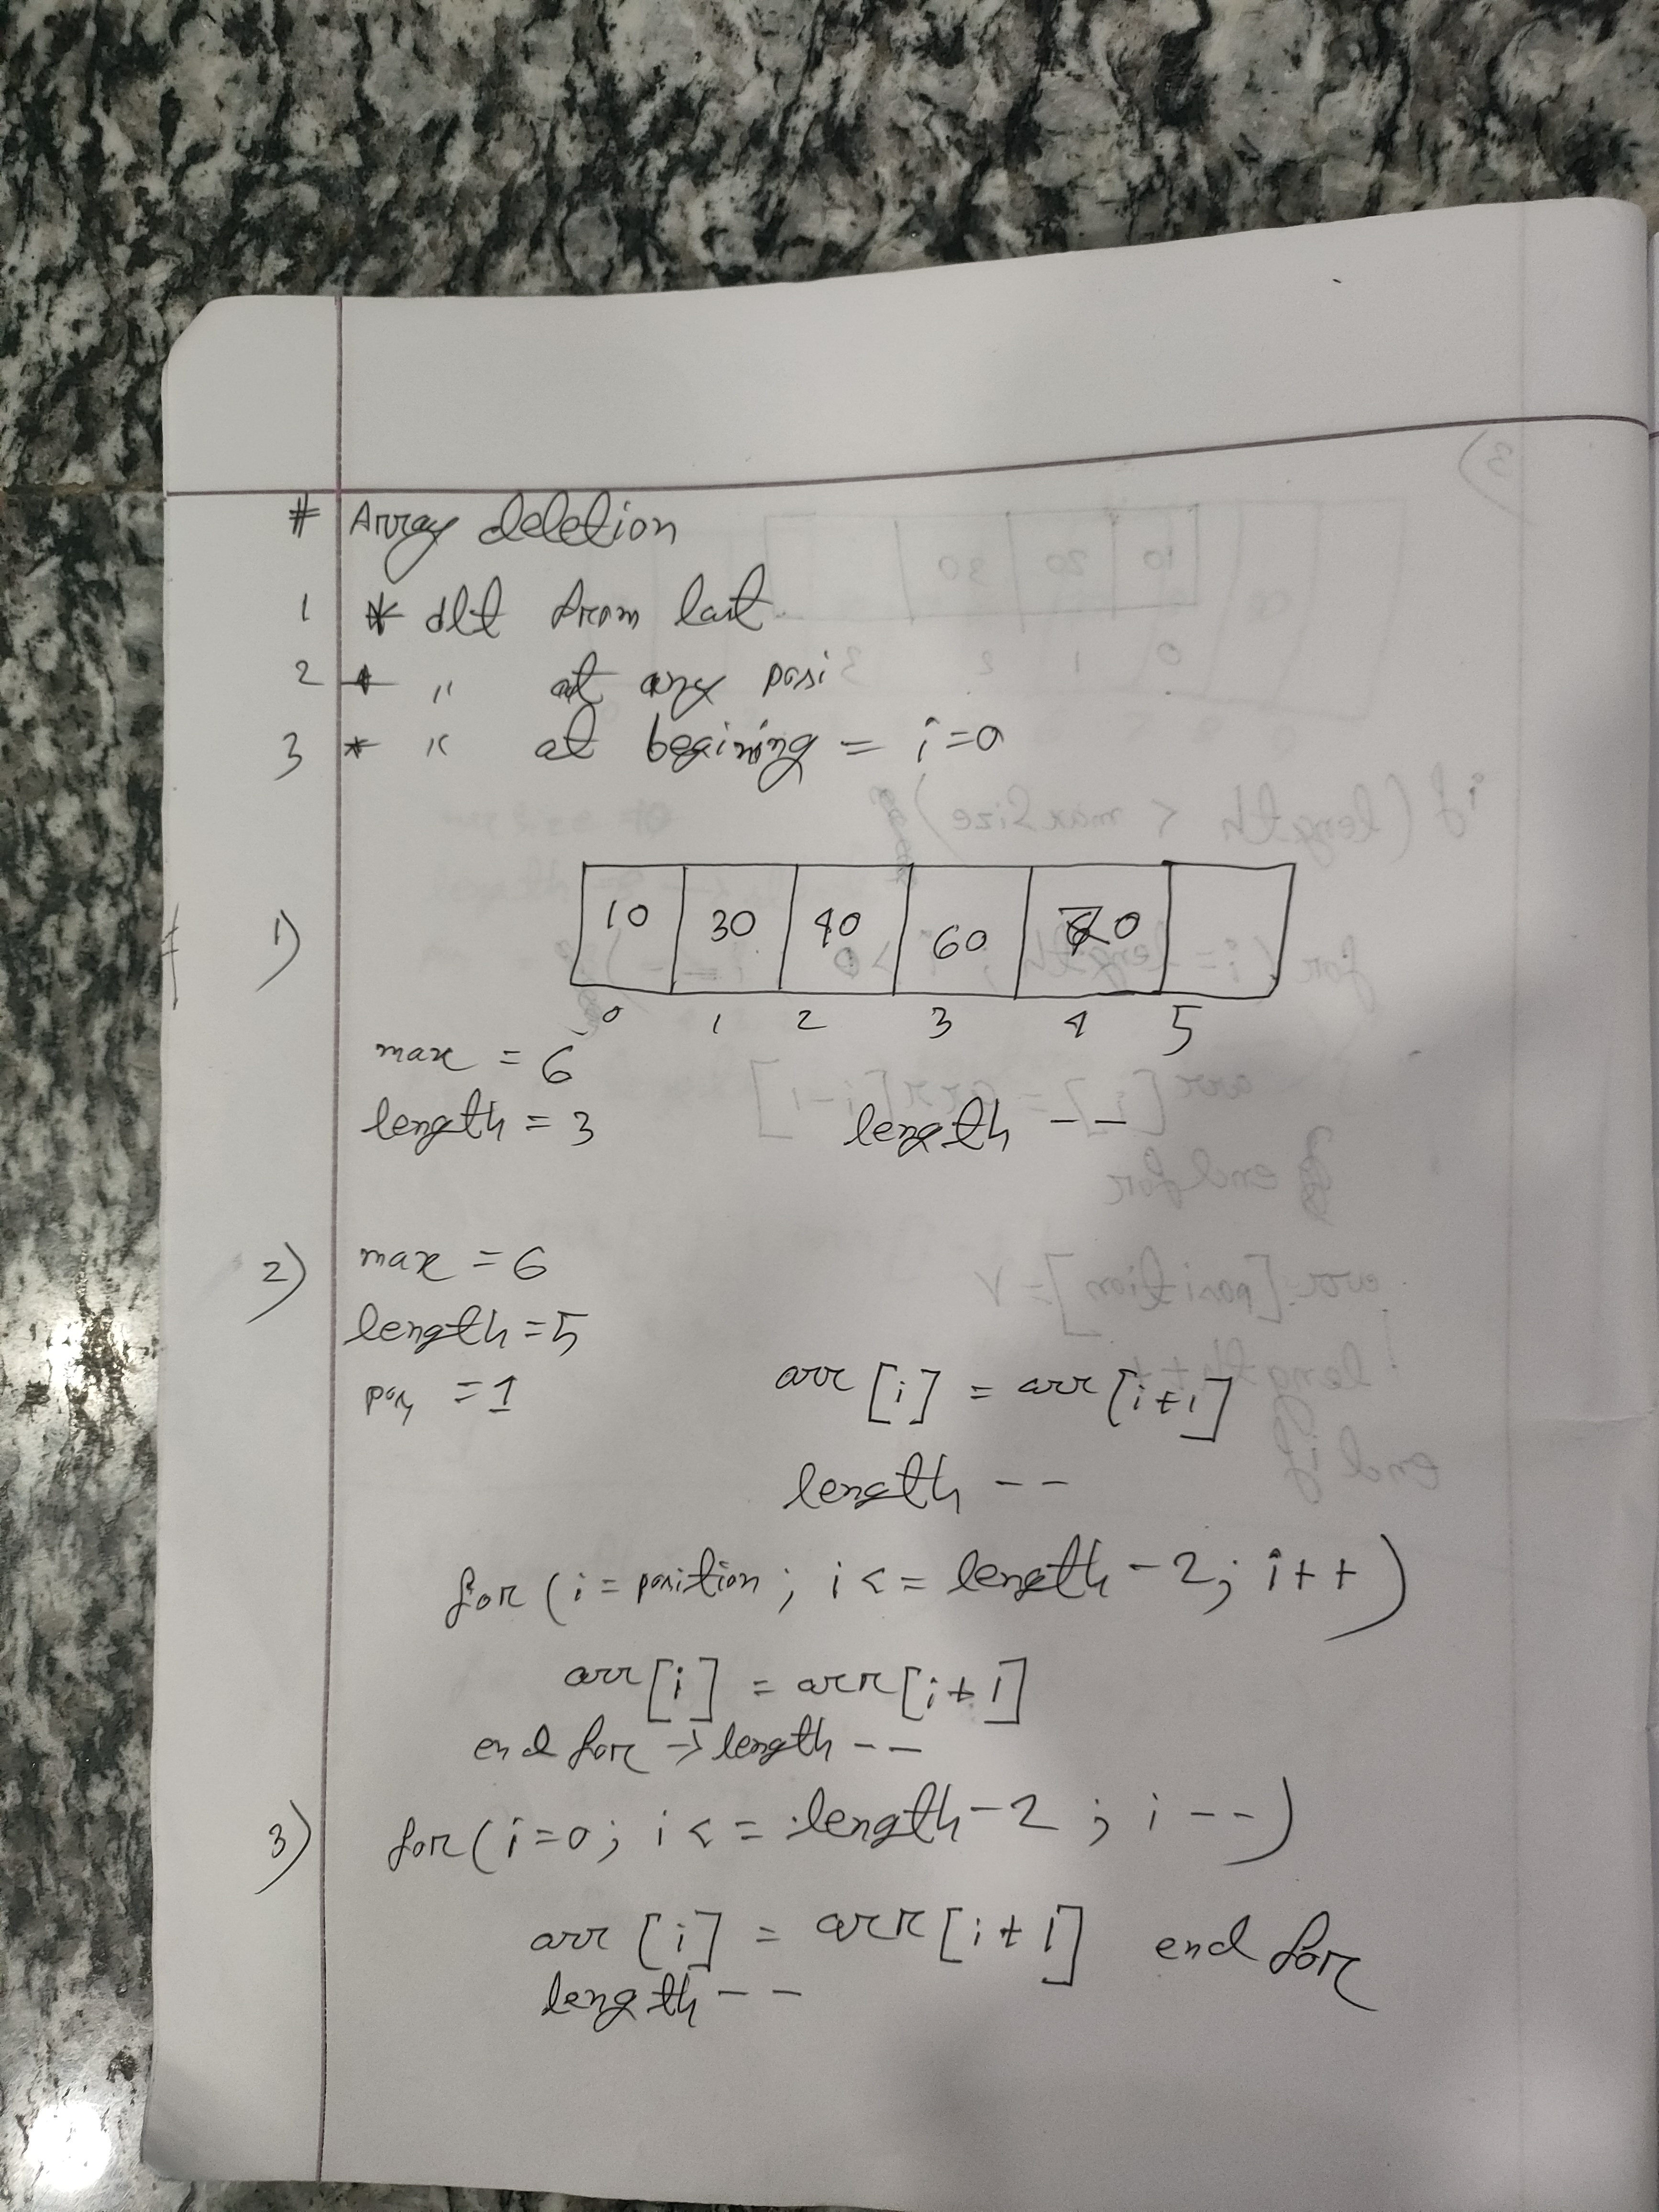 # Array deletion
1 * dlt from last
2 * " at any posi
3 * " at begining = i=0
1) 10 30 40 60 0
0 1 2 3 4 5
max = 6
length = 3 length --
2) max = 6
length = 5
pos = 1 arr [i] = arr [i+1]
length --
for (i = position ; i <= length - 2; i++)
arr [i] = arr [i+1]
end for → length --
3) for (i=0; i <= length - 2 ; i --)
arr [i] = arr [i+1] end for
length --